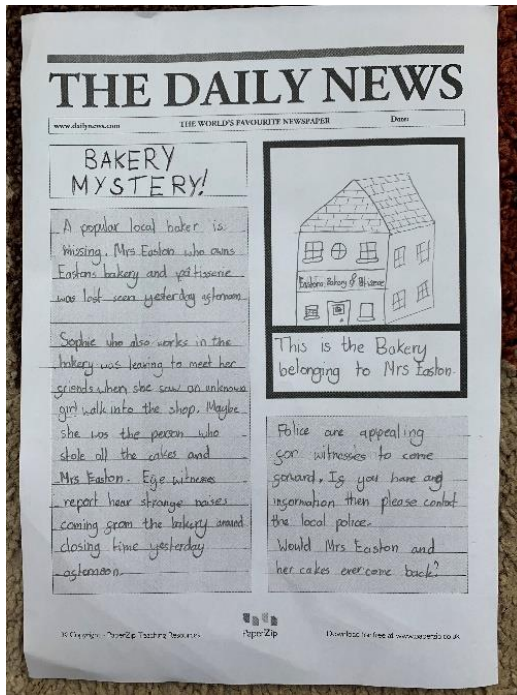 THE DAILY NEWS
www.dailynews.com THE WORLD'S FAVOURITE NEWSPAPER Date:
BAKERY
MYSTERY!
A popular local baker is
missing. Mrs Easton who owns
Eastons bakery and patisserie
was last seen yesterday afternoon
Sophie who also works in the
bakery was leaving to meet her
friends when she saw an unknown
girl walk into the shop. Maybe
she was the person who
stole all the cakes and
Mrs Easton. Eye witnesses
report hear strange noises
coming from the bakery around
closing time yesterday
afternoon.
Eastons Bakery &
This is the Bakery
belonging to Mrs Easton.
Police are appealing
for witnesses to come
forward. If you have any
information then please contact
the local police.
Would Mrs Easton and
her cakes ever come back?
© Copyright - PaperZip Teaching Resources
PaperZip
Download for free at www.paperzip.co.uk